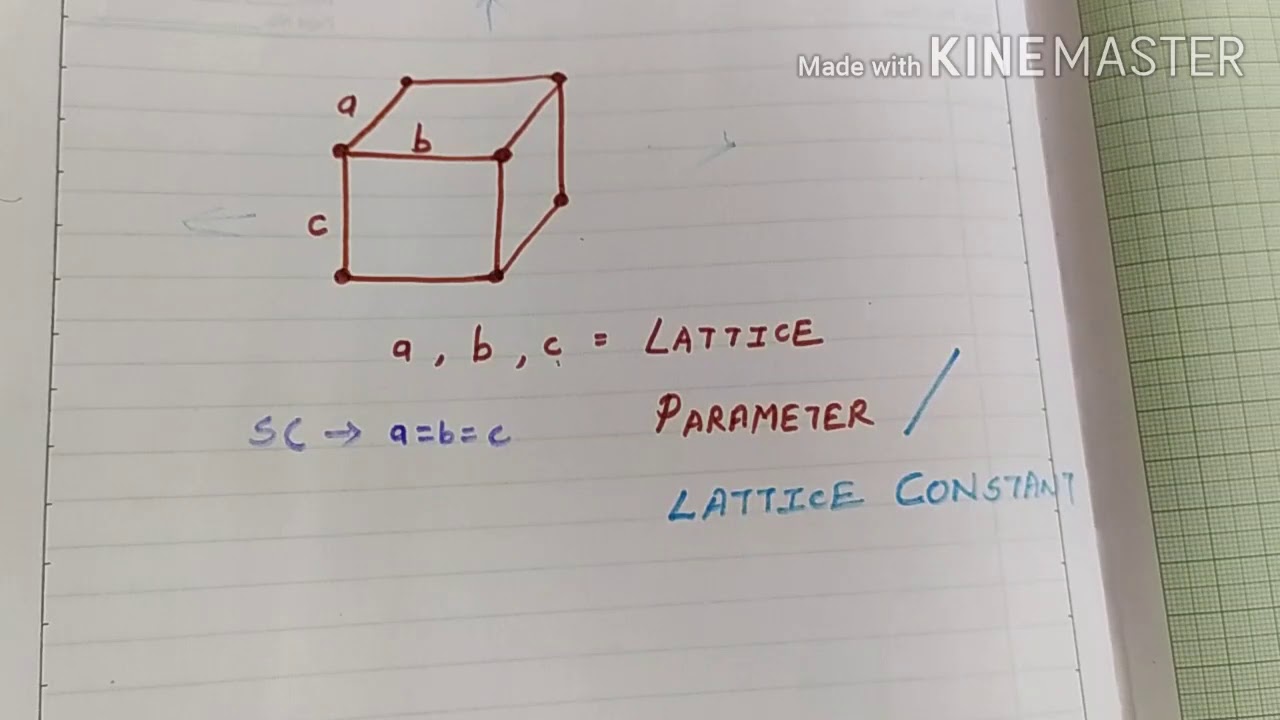 Made with KINEMASTER
a
b
c
a , b , c = LATTICE
PARAMETER /
SC → a=b=c
LATTICE CONSTANT